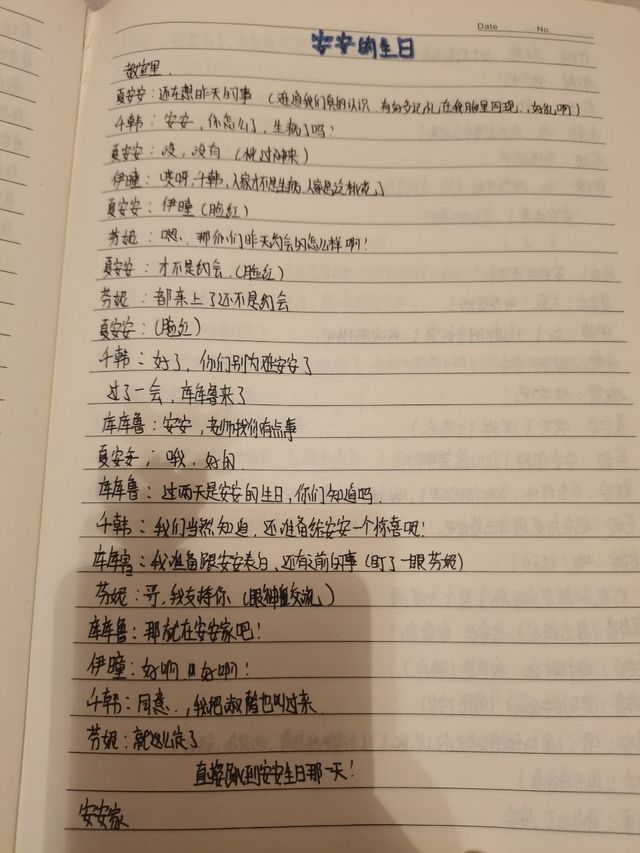 Date
No.
安安的生日
教室里.
夏安安：还在想昨天的事（难道我们真的认识，有好多记忆在我脑里回现，好乱啊）
千韩：安安，你怎么了，生病了吗？
夏安安：没，没有（忙过神来）
伊瞳：哎呀，千韩，人家才不是生病，人家是这桃花了
夏安安：伊瞳（脸红）
芬妮：嗯，那你们昨天约会的怎么样啊！
夏安安：才不是约会.（脸红）
芬妮：都亲上了还不是约会
夏安安：（脸红）
千韩：好了，你们别为难安安了
过了一会，库库鲁来了
库库鲁：安安，老师找你有点事
夏安安；哦，好的
库库鲁：过两天是安安的生日，你们知道吗.
千韩：我们当然知道，还准备给安安一个惊喜呢！
库库鲁：我准备跟安安表白，还有之前的事（盯了一眼芬妮）
芬妮：哥，我支持你（眼神交流）
库库鲁：那就在安安家吧！
伊瞳：好啊！！好啊！
千韩：同意.，我把淑薇也叫过来
芬妮：就这么定了
直接跳到安安生日那一天！
安安家